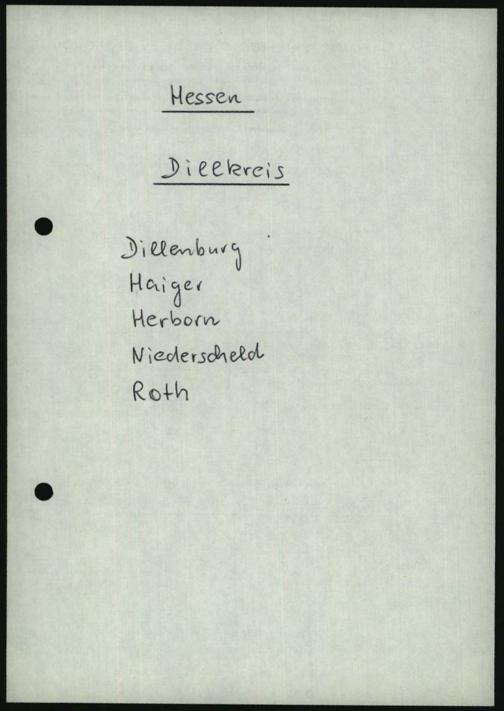 Hessen
Dillkreis
Dillenburg
Haiger
Herborn
Niederscheld
Roth